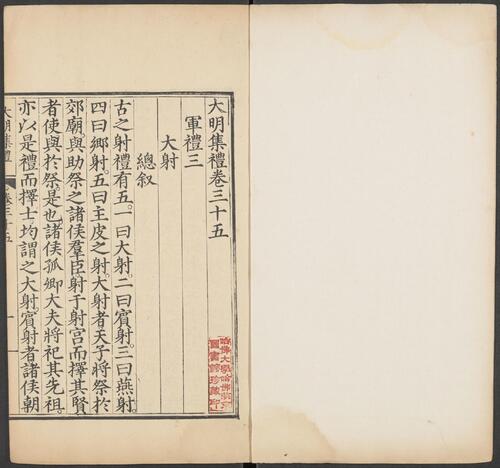 大明集禮卷三十五
軍禮三
大射
總叙
古之射禮有五。一曰大射。二曰賓射。三曰燕射。
四曰鄉射。五曰主皮之射。大射者天子將祭於
郊廟與助祭之諸侯羣臣射于射宮而擇其賢
者使與於祭。是也。諸侯孤卿大夫將祀其先祖。
亦以是禮而擇士。均謂之大射。賓射者諸侯朝
大明集禮 卷三十五 一
哈佛大學哈佛燕京
圖書館珍藏印